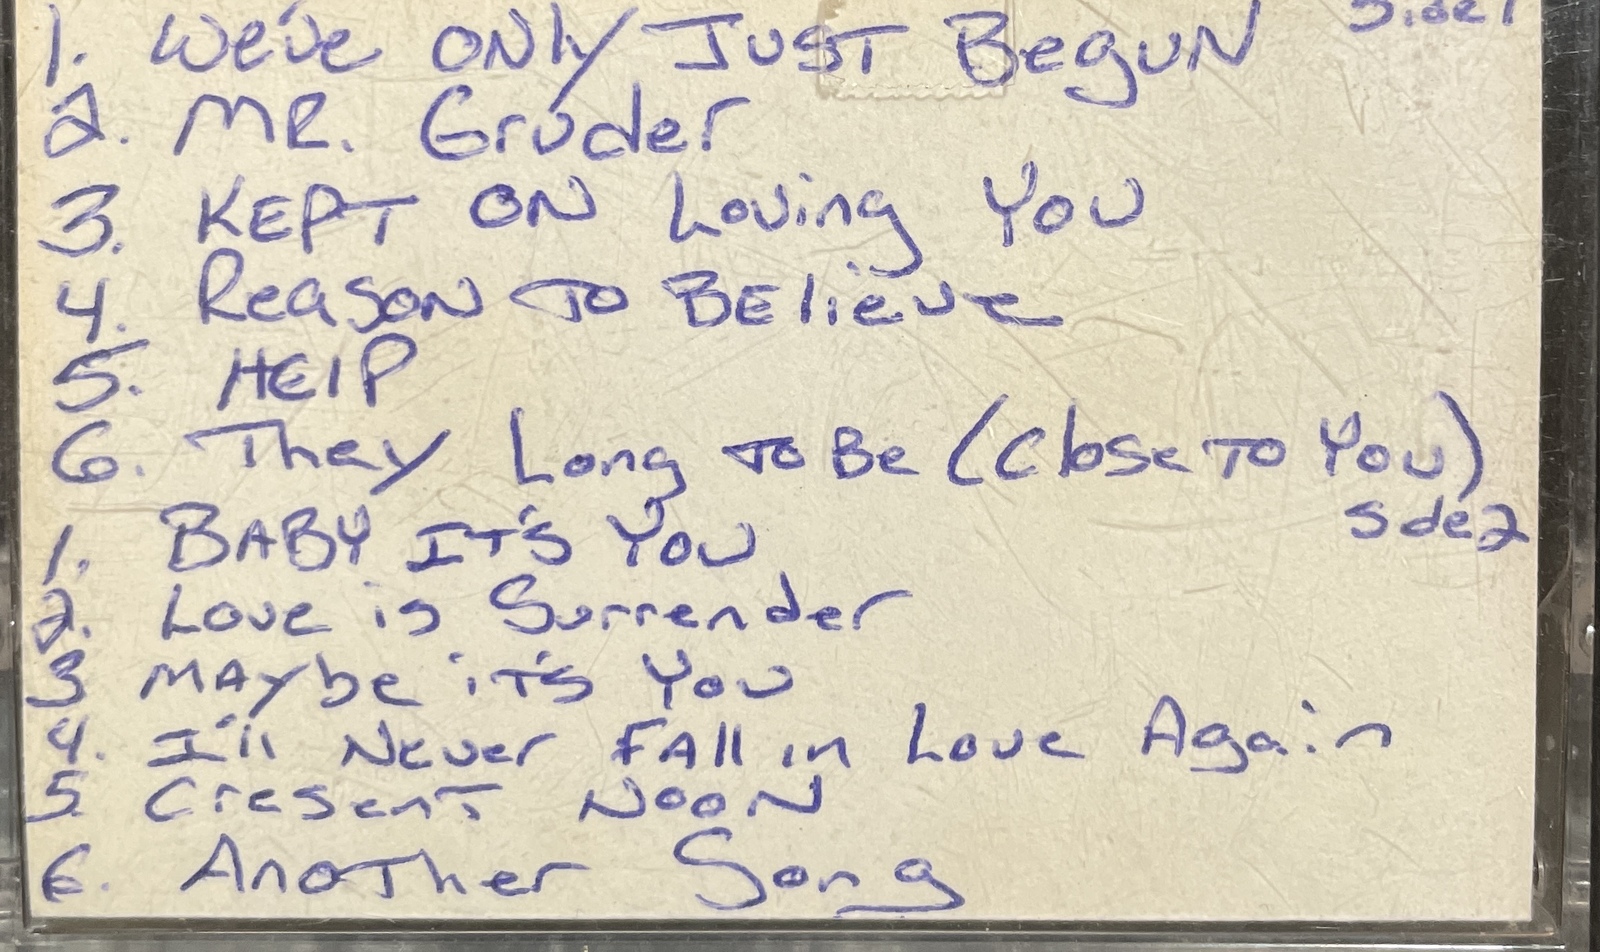 Side 1
1. We've ONly JUST BeguN
2. MR. Gruder
3. KEPT ON Loving You
4. ReasoN To BElieve
5. HElP
6. They Long To Be (Close To You)
Side 2
1. BABY IT'S You
2. Love is Surrender
3 MAybe iT's You
4. I'll Never FAll in Love Again
5. Cresent NooN
6. AnoTher Song